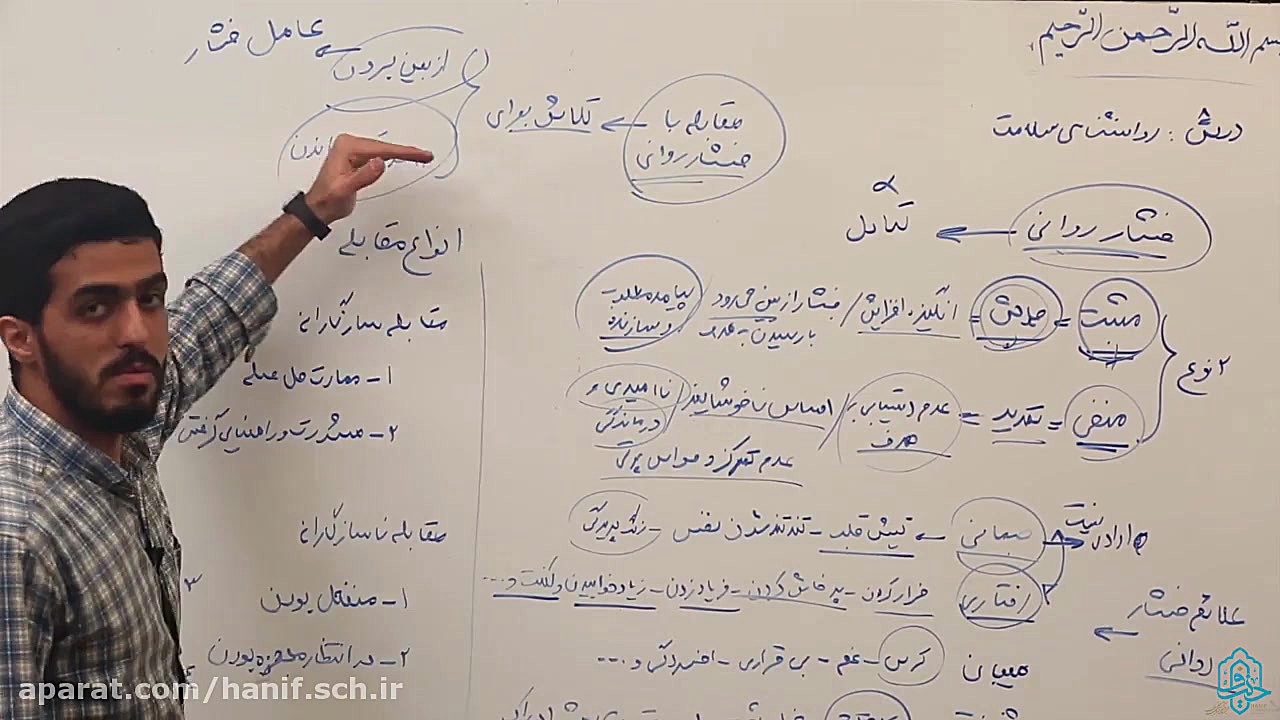 بسم الله الرحمن الرحیم
درس : روانشناسی سلامت
فشار روانی ← تعادل
۲ نوع
مثبت = چالش = انگیزه افزایش / فشار از بین می رود با رسیدن به هدف
پیامد مطلوب و سازنده
منفی = تهدید = عدم دستیابی به هدف / احساس ناخوشایند / ناامیدی و درماندگی
عدم تمرکز و حواس پرتی
علائم فشار روانی ←
ارادی نیست
جسمانی ← تپش قلب - تند تند شدن نفس - رنگ پریدگی
رفتاری
فرار کردن - پرخاش کردن - فریاد زدن - زیاد خوابیدن و لکنت و ...
هیجانی
ترس - غم - بی قراری - افسردگی و ...
مقابله با فشار روانی ← تلاش برای
از بین بردن ← عامل فشار
انواع مقابله
مقابله سازگارانه
۱- مهارت حل مسئله
۲- مشورت و راهنمایی گرفتن
مقابله ناسازگارانه
۱- منفعل بودن
۲- در انتظار معجزه بودن
۳
aparat.com/hanif.sch.ir
حنیف